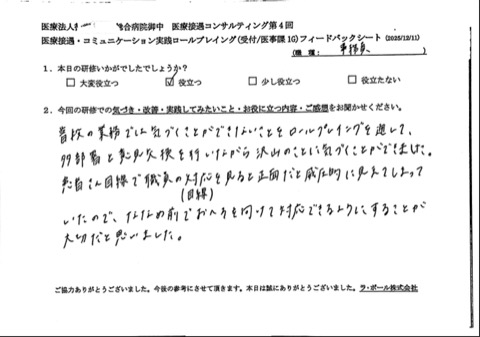 医療法人 合病院御中 医療接遇コンサルティング第４回
医療接遇・コミュニケーション実践ロールプレイング(受付/医事課1G)フィードバックシート (2025/12/11)
(職種： 事務員 )
１．本日の研修いかがでしたでしょうか？
□ 大変役立つ ☑ 役立つ □ 少し役立つ □ 役立たない
２．今回の研修での気づき・改善・実践してみたいこと・お役に立つ内容・ご感想をお聞かせください。
普段の業務では気づくことができないことをロールプレイングを通して、
他部署と意見交換を行いながら沢山のことに気づくことができました。
患者さん目線で職員の対応を見ると正面だと威圧的に見えてしまって
(目線)
いたので、ななめ前でおへそを向けて対応できるようにすることが
大切だと思いました。
ご協力ありがとうございました。今後の参考にさせて頂きます。本日は誠にありがとうございました。ラ・ポール株式会社